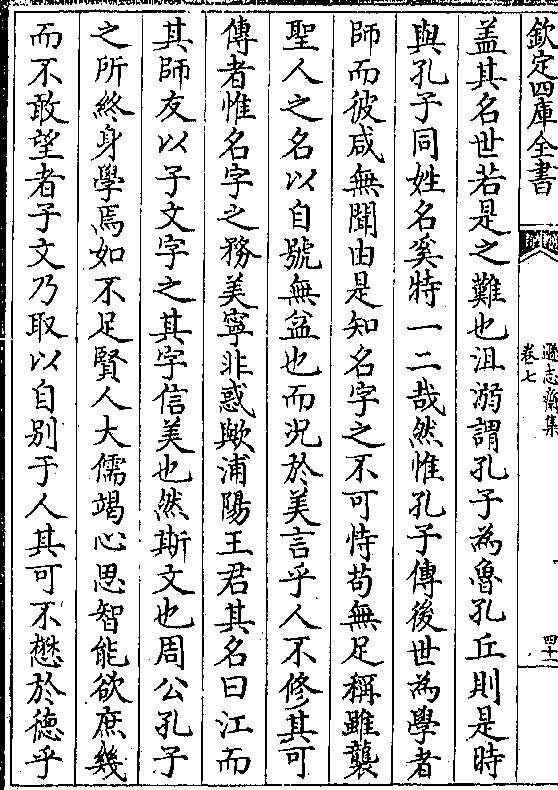 欽定四庫全書
遜志齋集
卷七
四十
蓋其名世若是之難也沮溺謂孔子為魯孔丘則是時
與孔子同姓名奚特一二哉然惟孔子傳後世為學者
師而彼咸無聞由是知名字之不可恃苟無足稱雖襲
聖人之名以自號無益也而况於美言乎人不修其可
傳者惟名字之務美寧非惑歟浦陽王君其名曰江而
其師友以子文字之其字信美也然斯文也周公孔子
之所終身學焉如不足賢人大儒竭心思智能欲庶幾
而不敢望者子文乃取以自别于人其可不懋於德乎